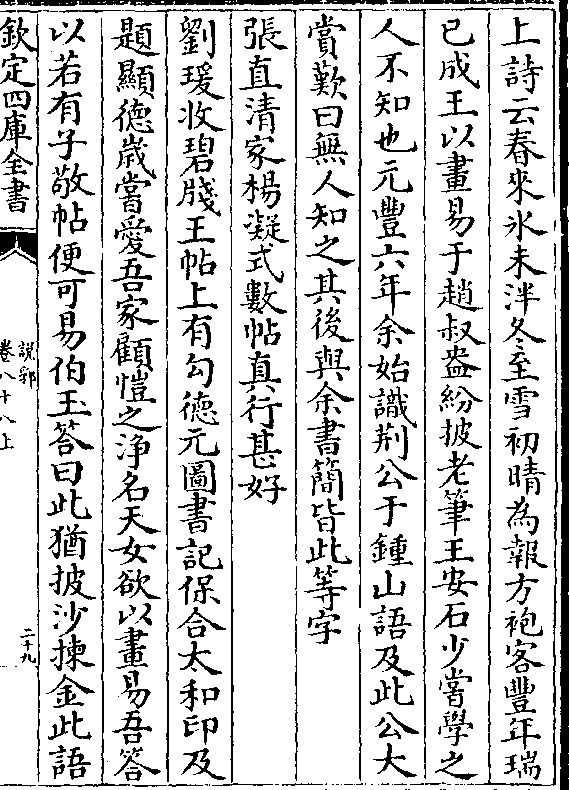 上詩云春來氷未泮冬至雪初晴為報方袍客豐年瑞
已成王以畫易于趙叔盎紛披老筆王安石少嘗學之
人不知也元豐六年余始識荆公于鍾山語及此公大
賞歎曰無人知之其後與余書簡皆此等字
張直清家楊凝式數帖真行甚好
劉瑗收碧牋王帖上有勾德元圖書記保合太和印及
題顯德歲嘗愛吾家顧愷之淨名天女欲以畫易吾答
以若有子敬帖便可易伯玉答曰此猶披沙揀金此語
欽定四庫全書
說郛
卷八十八上
二十九